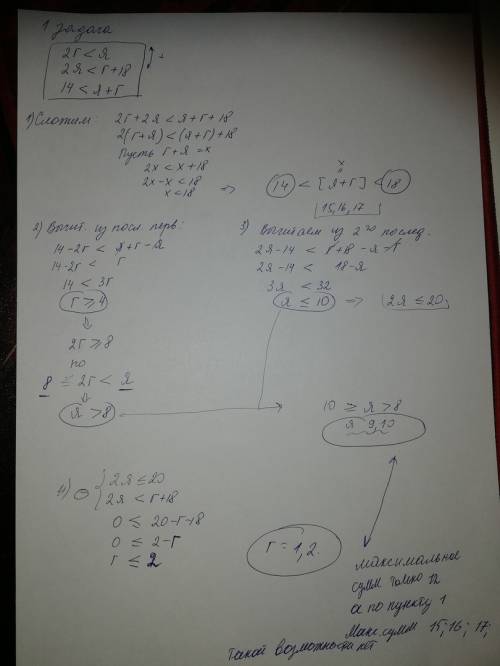 1 задача
2г < я
2я < г+18
14 < я+г
1) Сложим: 2г+2я < я+г+18
2(г+я) < (я+г)+18
Пусть г+я = х
2х < х+18
2х-х < 18
х < 18 ⇒
х
14 < [я+г] < 18
15,16,17
2) Вычит. из посл. перв:
14-2г < я+г-я
14-2г < г
14 < 3г
г > 4
2г ≥ 8
но
8 ≤ 2г < я
я > 8
3) Вычитаем из 2го послед.
2я-14 < г+18-я-г
2я-14 < 18-я
3я < 32
я ≤ 10 ⇒ 2я ≤ 20
10 ≥ я > 8
я 9,10
4) ⊖ { 2я ≤ 20
2я < г+18
0 ≤ 20-г-18
0 ≤ 2-г
г ≤ 2
г = 1,2.
максимальное
сумм только 12
а по пункту 1
Макс. сумм 15; 16; 17;
такой возможности нет